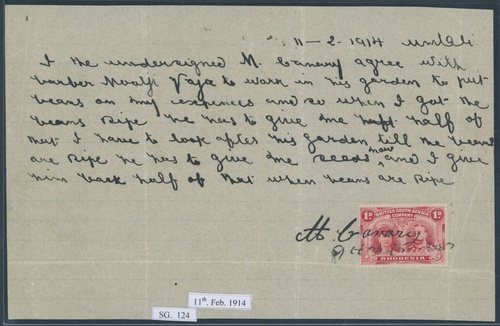 11-2-1914 umtali
I the undersigned M. Canary agree with
barber Moolji Vaja to work in his garden to put
beans on my expences and so when I got the
beans ripe he has to give me half of
that I have to look after his garden till the beans
are ripe he has to give me seeds now and I give
him back half of that when beans are ripe
M. Canary
1D BRITISH SOUTH AFRICA COMPANY 1D
RHODESIA
11th. Feb. 1914
SG. 124